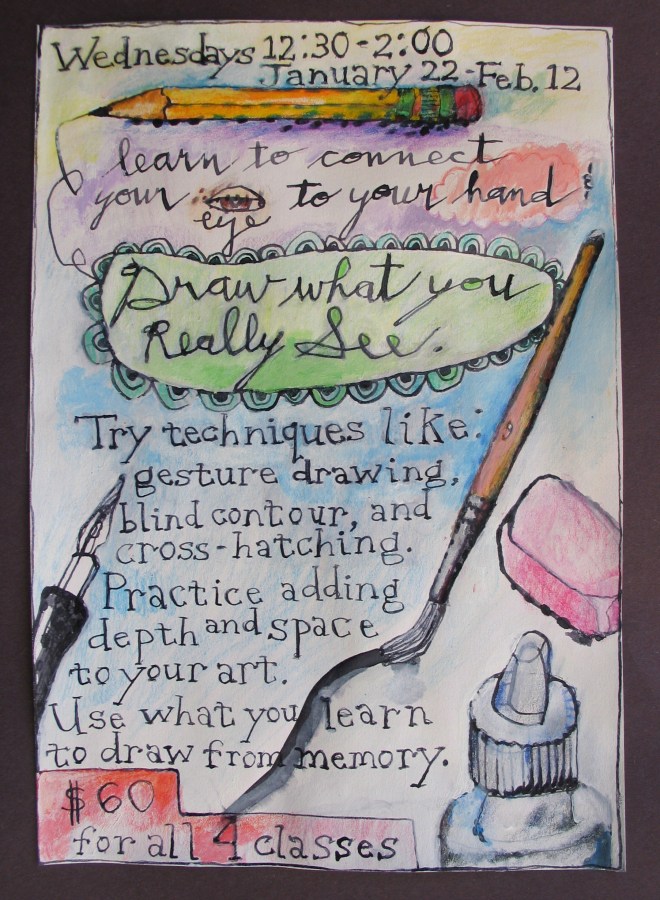 Wednesdays 12:30-2:00
January 22-Feb. 12
learn to connect
your eye to your hand
Draw what you
Really See.
Try techniques like:
gesture drawing,
blind contour, and
cross-hatching.
Practice adding
depth and space
to your art.
Use what you learn
to draw from memory.
$60
for all 4 classes